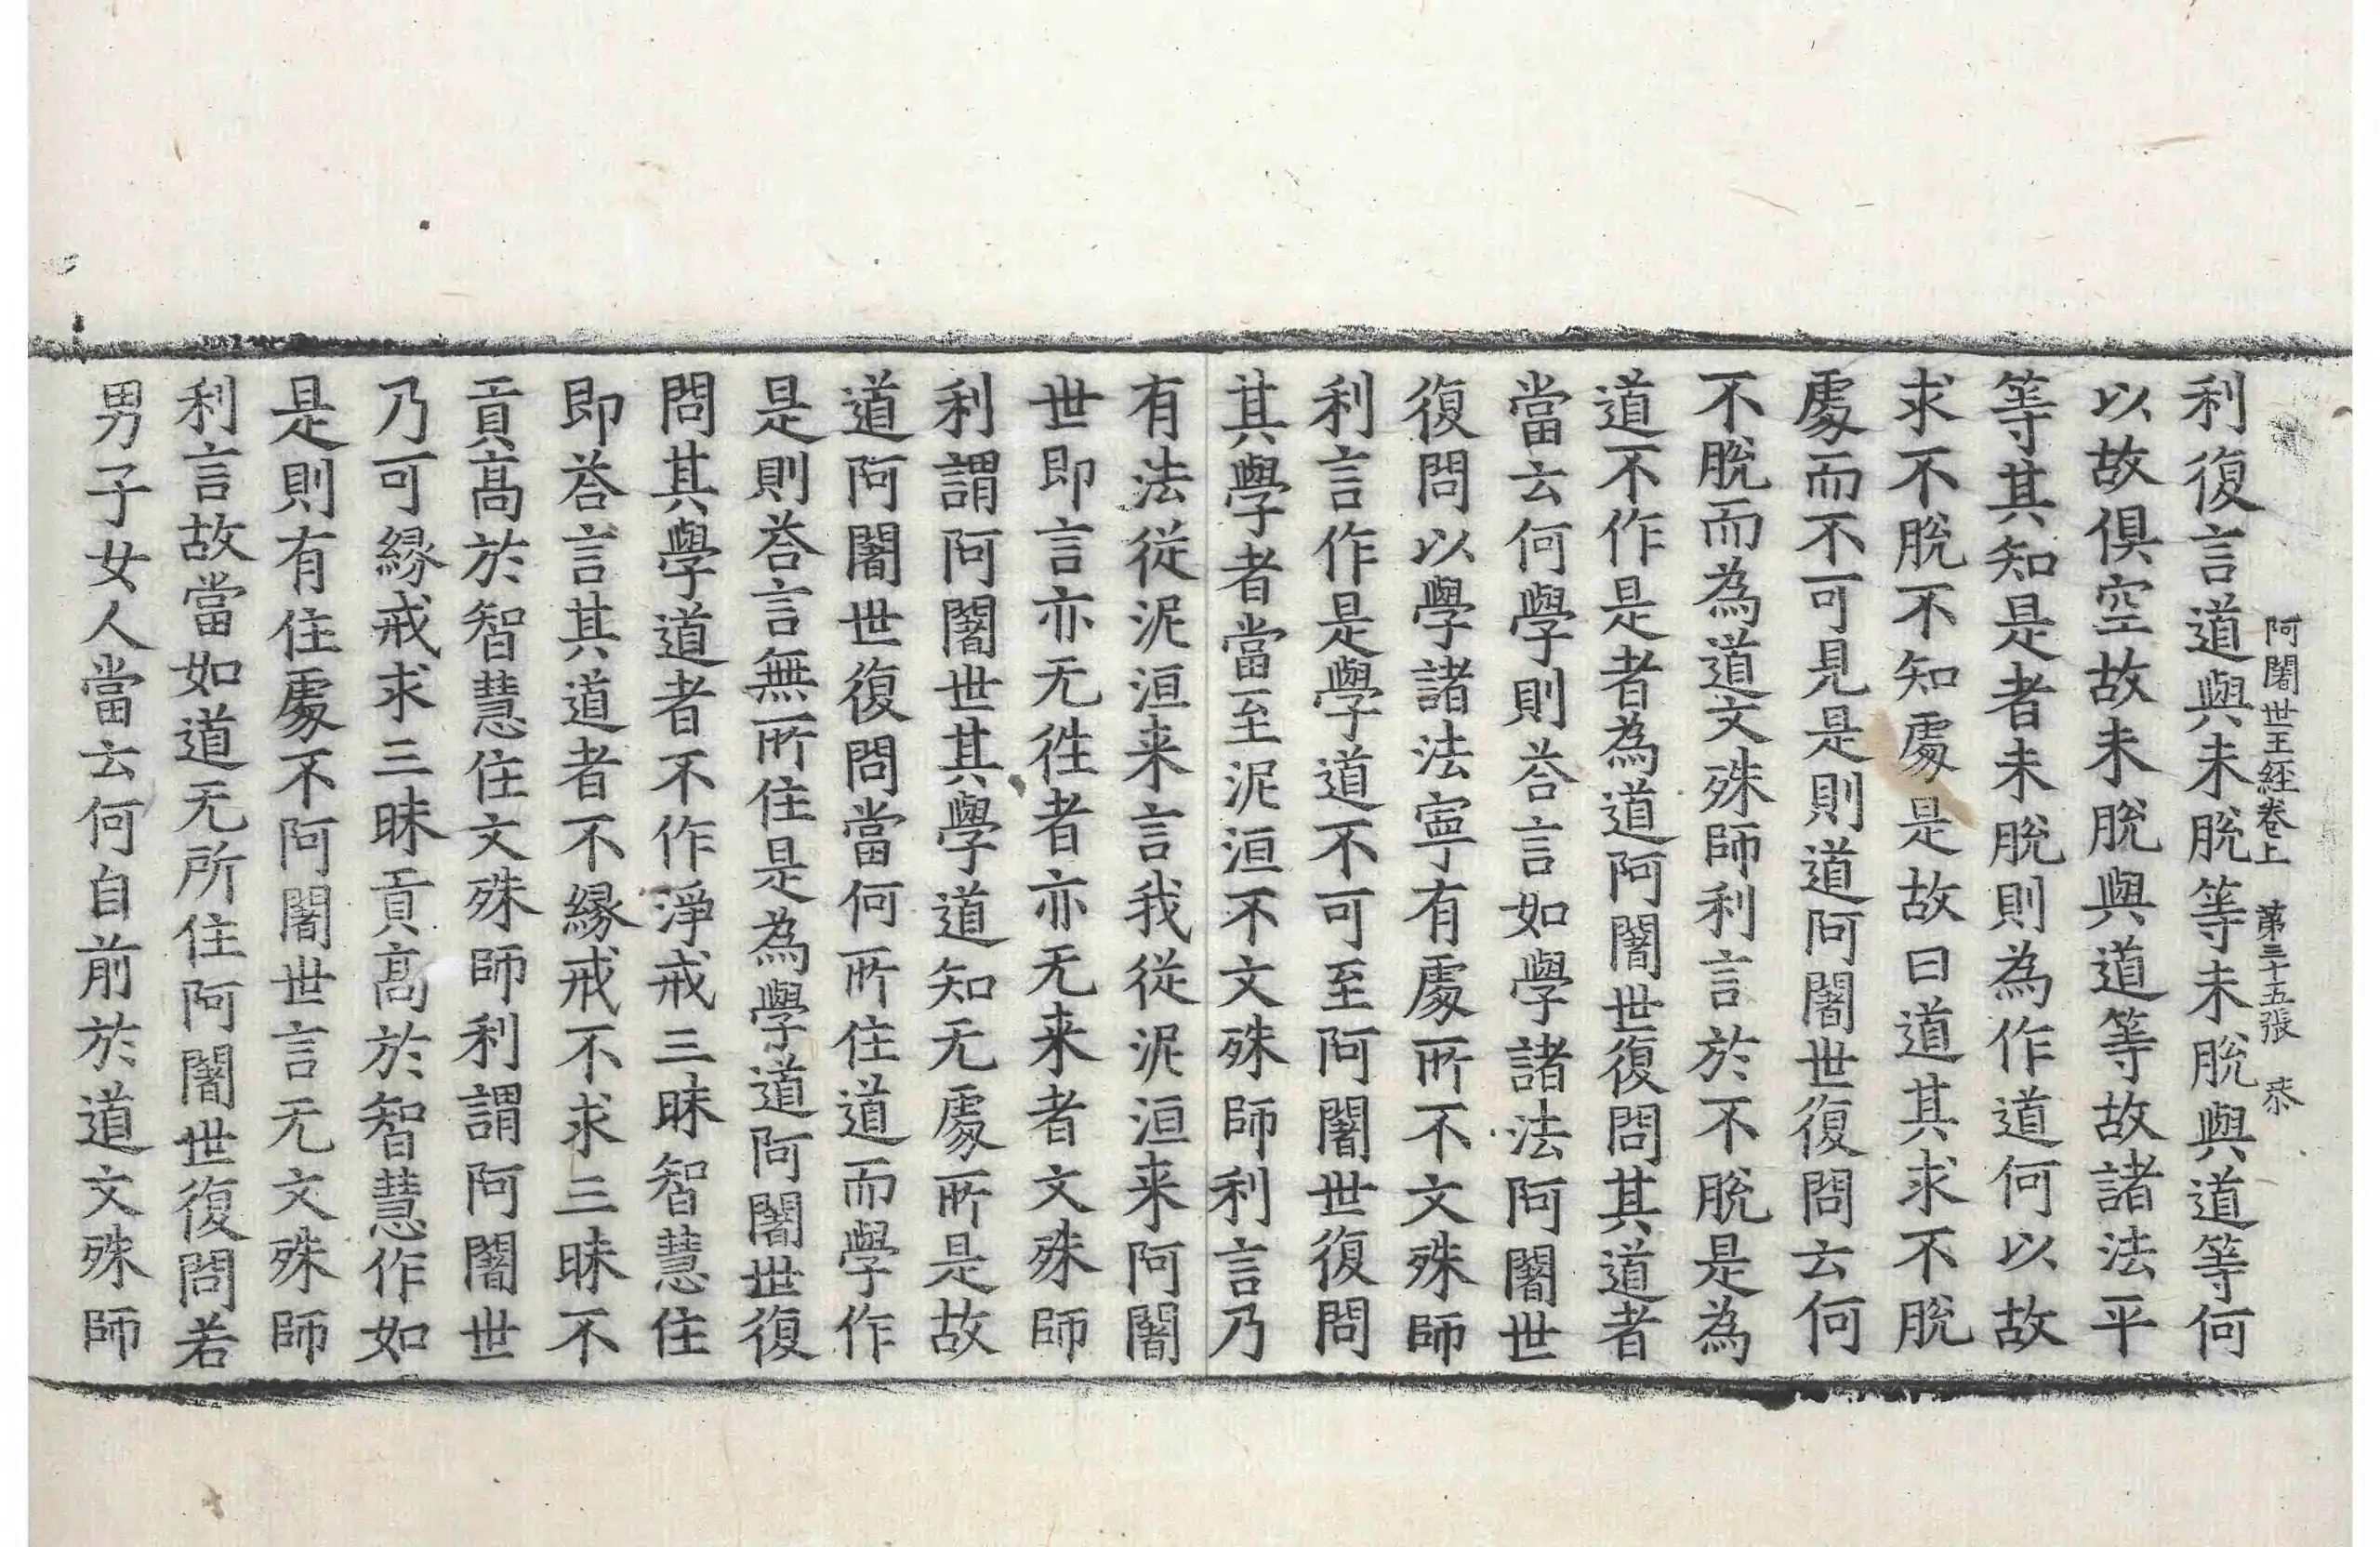 阿闍世王經卷上 第三十五張 恭
利復言道與未脫等未脫與道等何
以故俱空故未脫與道等故諸法平
等其知是者未脫則為作道何以故
求不脫不知處是故曰道其求不脫
處而不可見是則道阿闍世復問云何
不脫而為道文殊師利言於不脫是為
道不作是者為道阿闍世復問其道者
當云何學則荅言如學諸法阿闍世
復問以學諸法寧有處所不文殊師
利言作是學道不可至阿闍世復問
其學者當至泥洹不文殊師利言乃
有法從泥洹来言我從泥洹来阿闍
世即言亦无徃者亦无来者文殊師
利謂阿闍世其學道知无處所是故
道阿闍世復問當何所住道而學作
是則荅言無所住是為學道阿闍世復
問其學道者不作淨戒三昧智慧住
即荅言其道者不緣戒不求三昧不
貢高於智慧住文殊師利謂阿闍世
乃可緣戒求三昧貢高於智慧作如
是則有住處不阿闍世言无文殊師
利言故當如道无所住阿闍世復問若
男子女人當云何自前於道文殊師